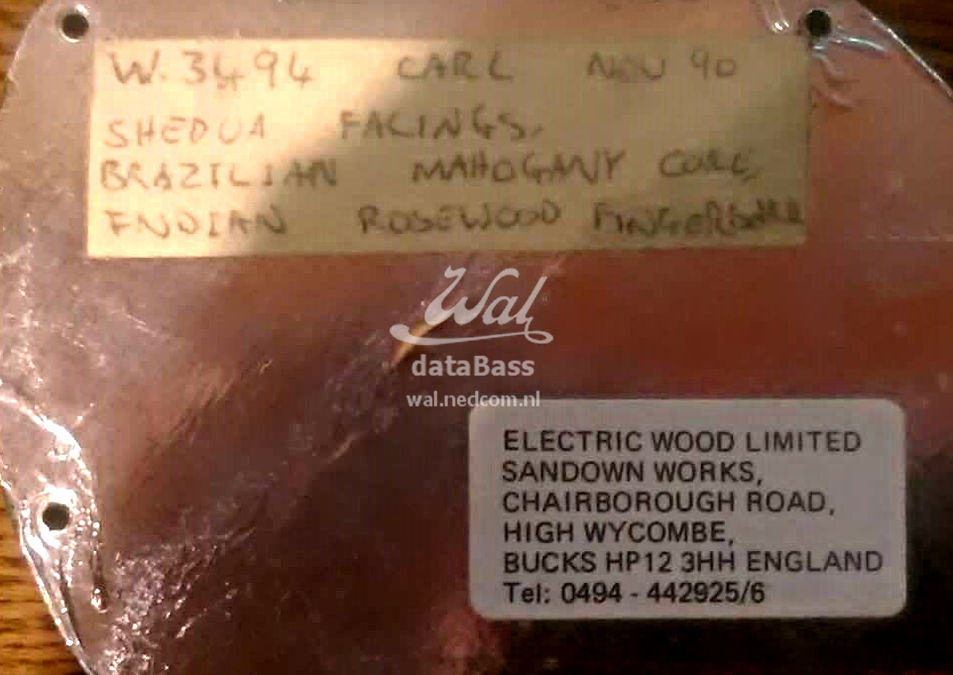 W.3494 CARL NOV 90
SHEDUA FACINGS.
BRAZILIAN MAHOGANY CORE,
INDIAN ROSEWOOD FINGERBOARD
Wal
dataBass
wal.nedcom.nl
ELECTRIC WOOD LIMITED
SANDOWN WORKS,
CHAIRBOROUGH ROAD,
HIGH WYCOMBE,
BUCKS HP12 3HH ENGLAND
Tel: 0494 - 442925/6